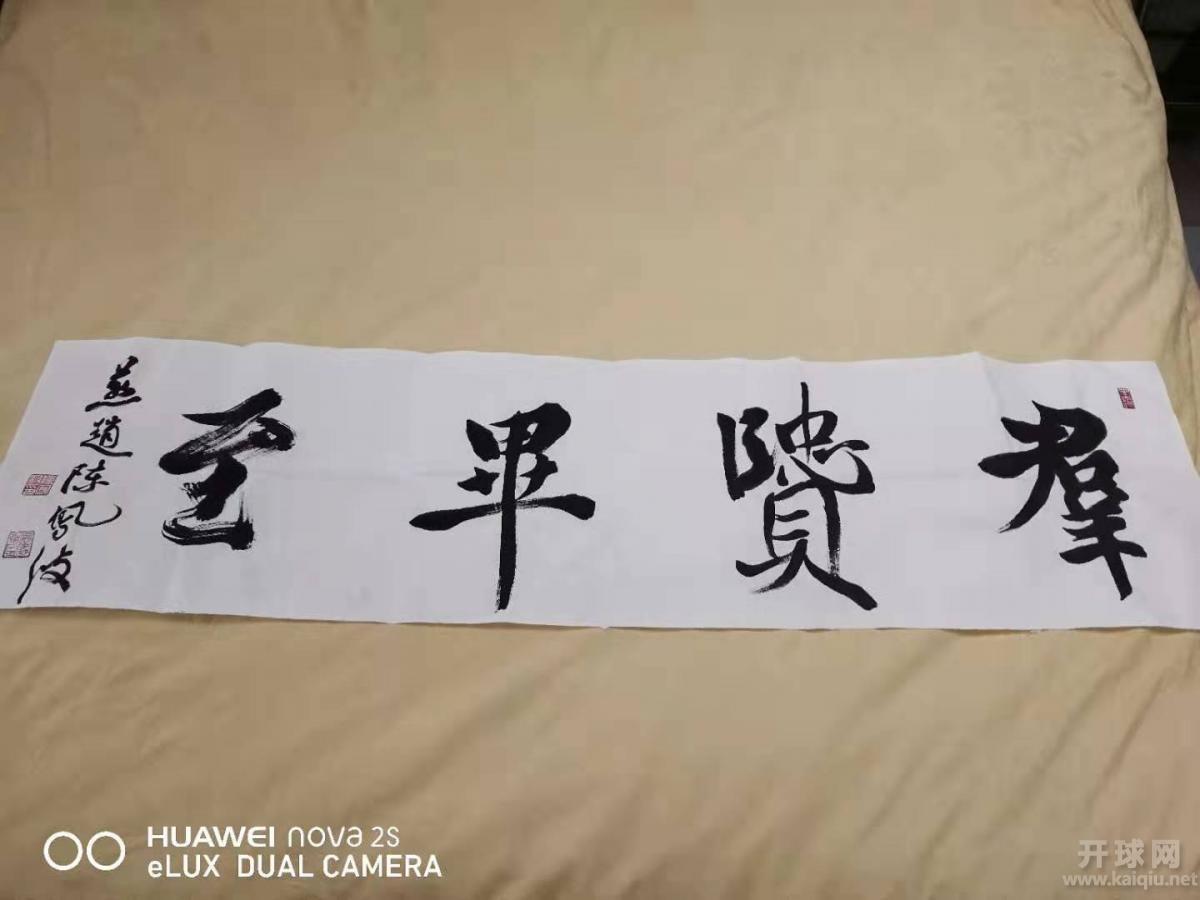 羣賢畢至
燕趙陳鳳波
HUAWEI nova 2s
eLUX DUAL CAMERA
开球网
www.kaiqiu.net